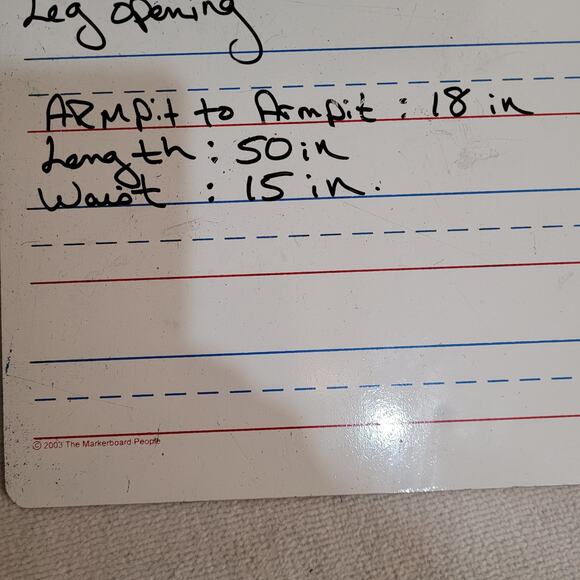 Leg opening
ARMpit to Armpit : 18 in
Length : 50 in
Waist : 15 in.
© 2003 The Markerboard People